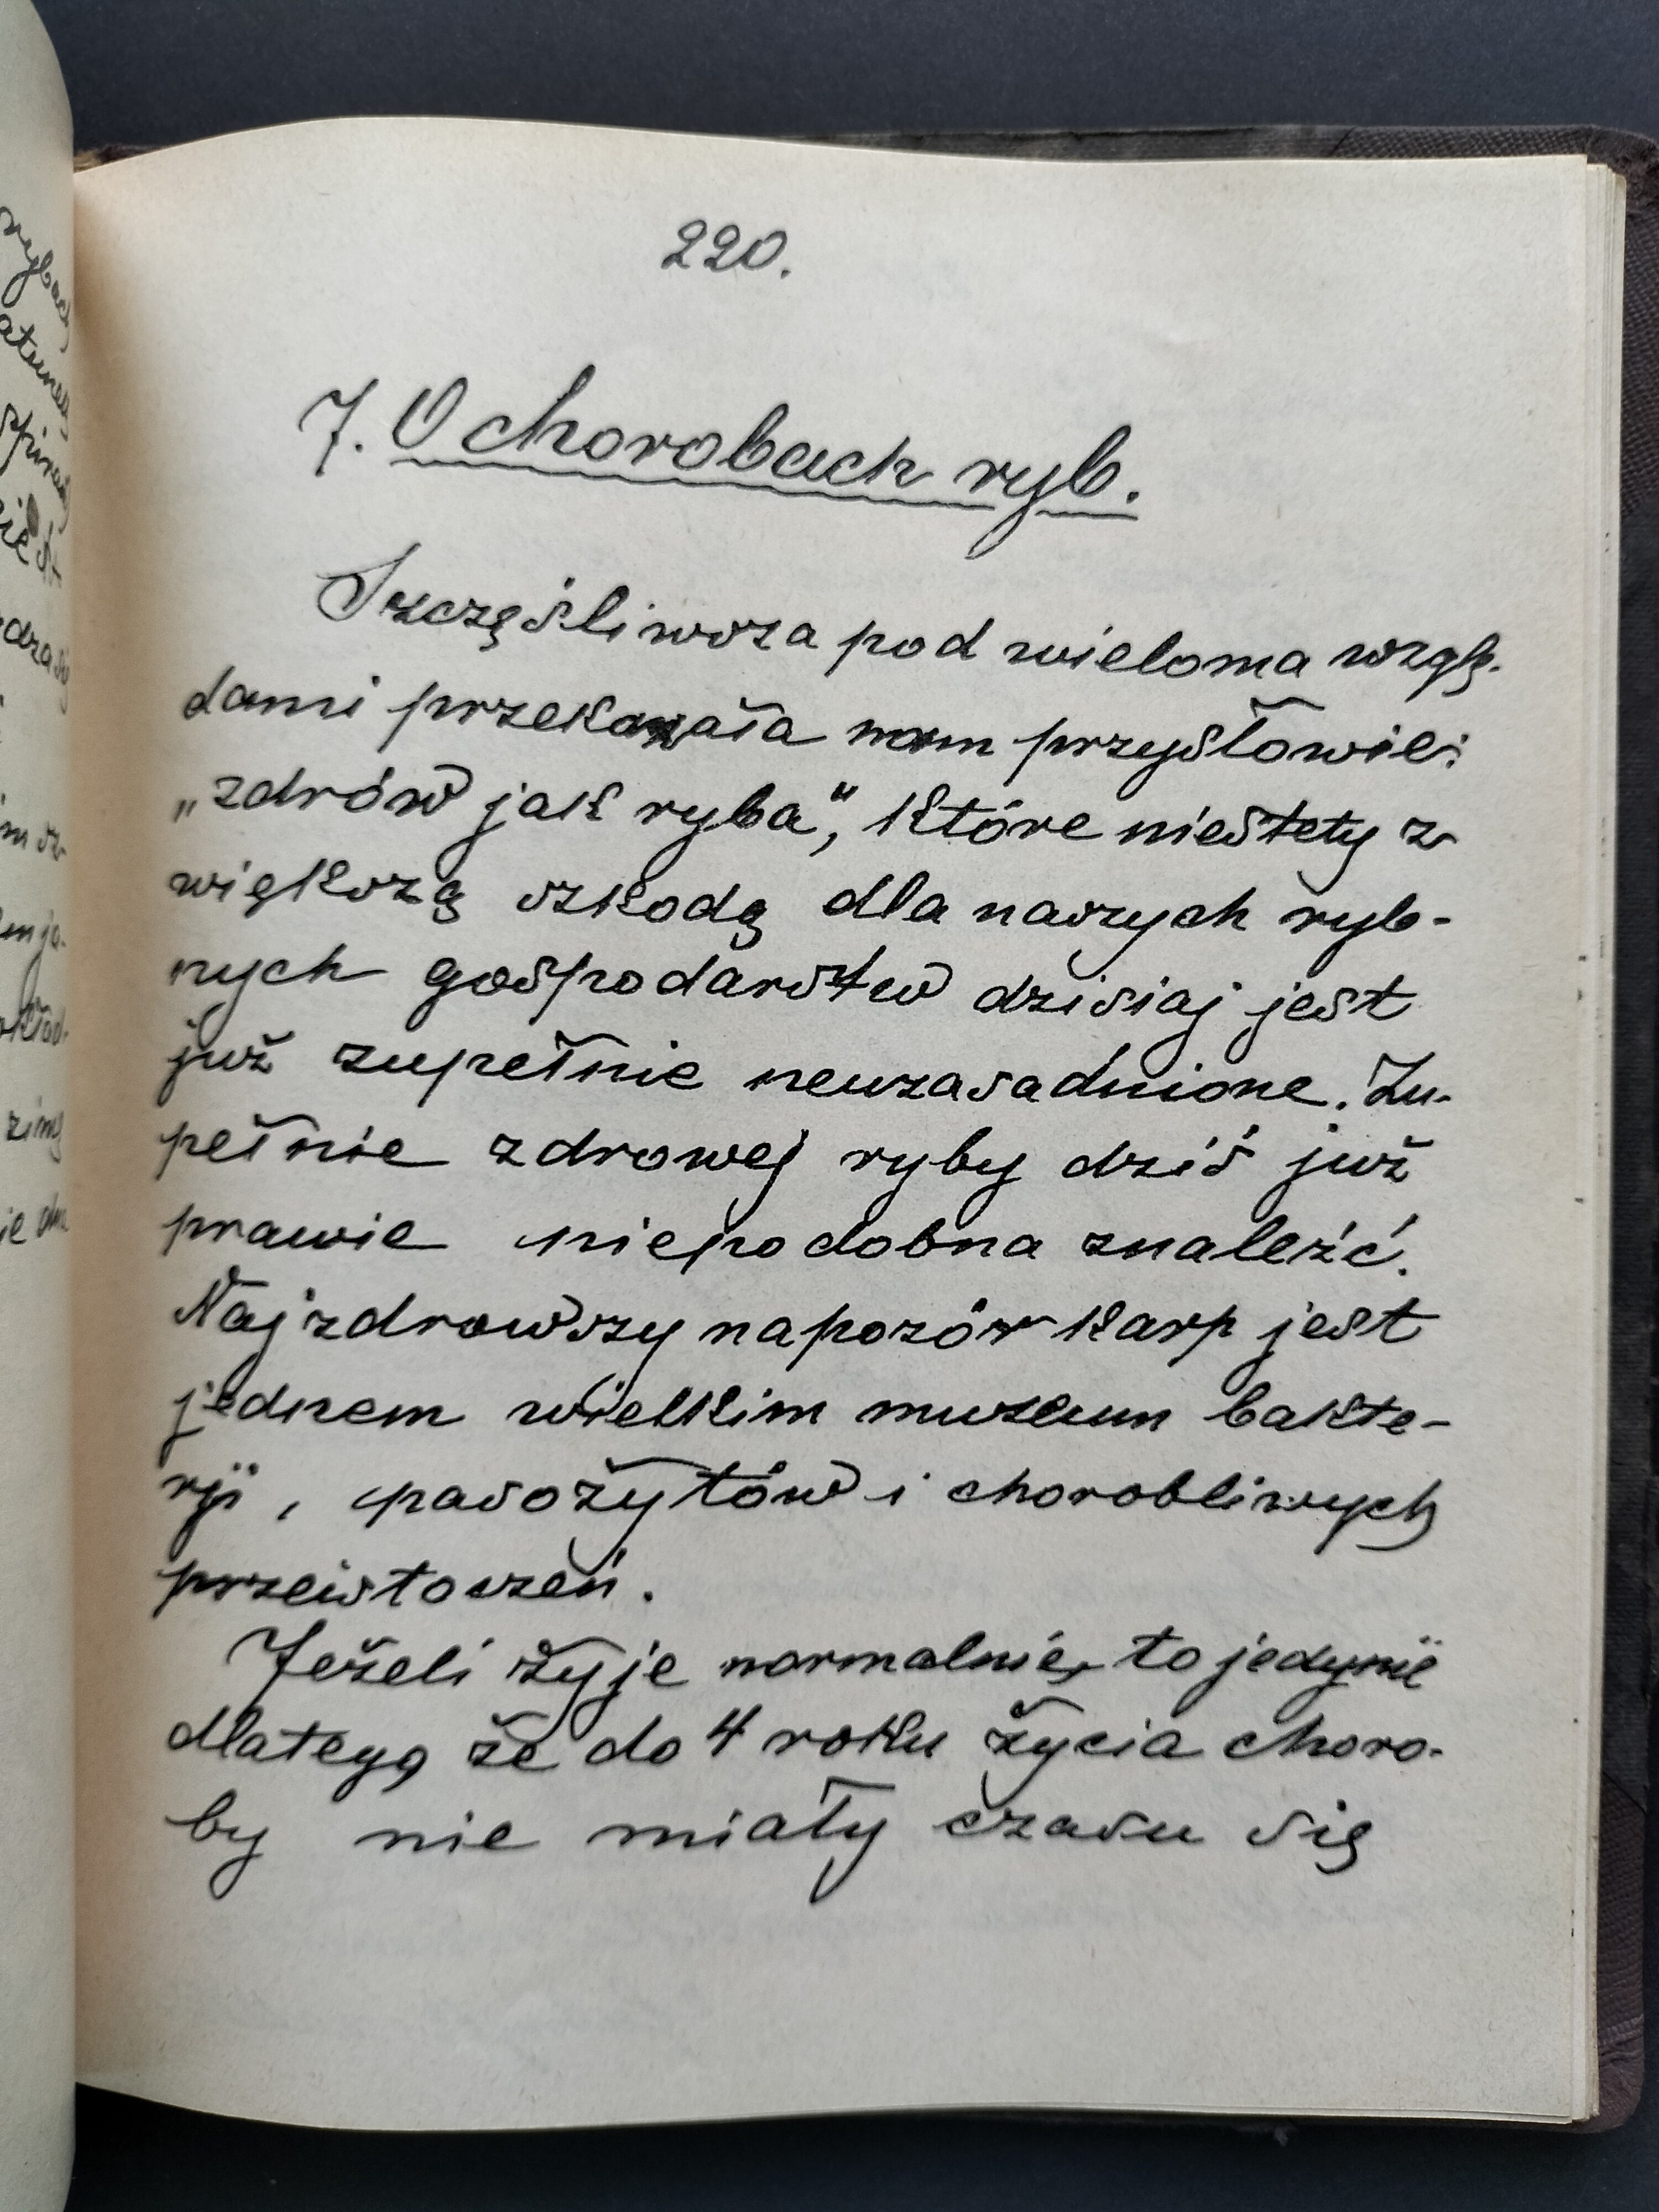 220.
7. O chorobach ryb.
Szczęśliwsza pod wieloma wzglę-
dami przekazała nam przysłowie:
„zdrów jak ryba", które niestety z
większą szkodą dla naszych ryb-
nych gospodarstw dzisiaj jest
już zupełnie neuzasadnione. Zu-
pełnie zdrowej ryby dziś już
prawie niepodobna znaleźć.
Najzdrowszy napozór karp jest
jednem wielkim muzeum bakte-
ryji, pasożytów i chorobliwych
przeistoczeń.
Jeżeli żyje normalnie, to jedynie
dlatego, że do 4 roku życia choro-
by nie miały czasu się